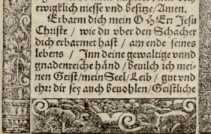 ewigklich niesse vnd besitze/Amen.
Erbarm dich mein O HErr Jesu
Christe / wie du vber den Schacher
dich erbarmet hast / am ende seines
lebens / Jnn deine gewaltige vnnd
gnadenreiche händ / beuilch ich mei-
nen Geist/mein Seel/Leib / gut vnd
ehr: dir sey auch beuohlen/Geistliche